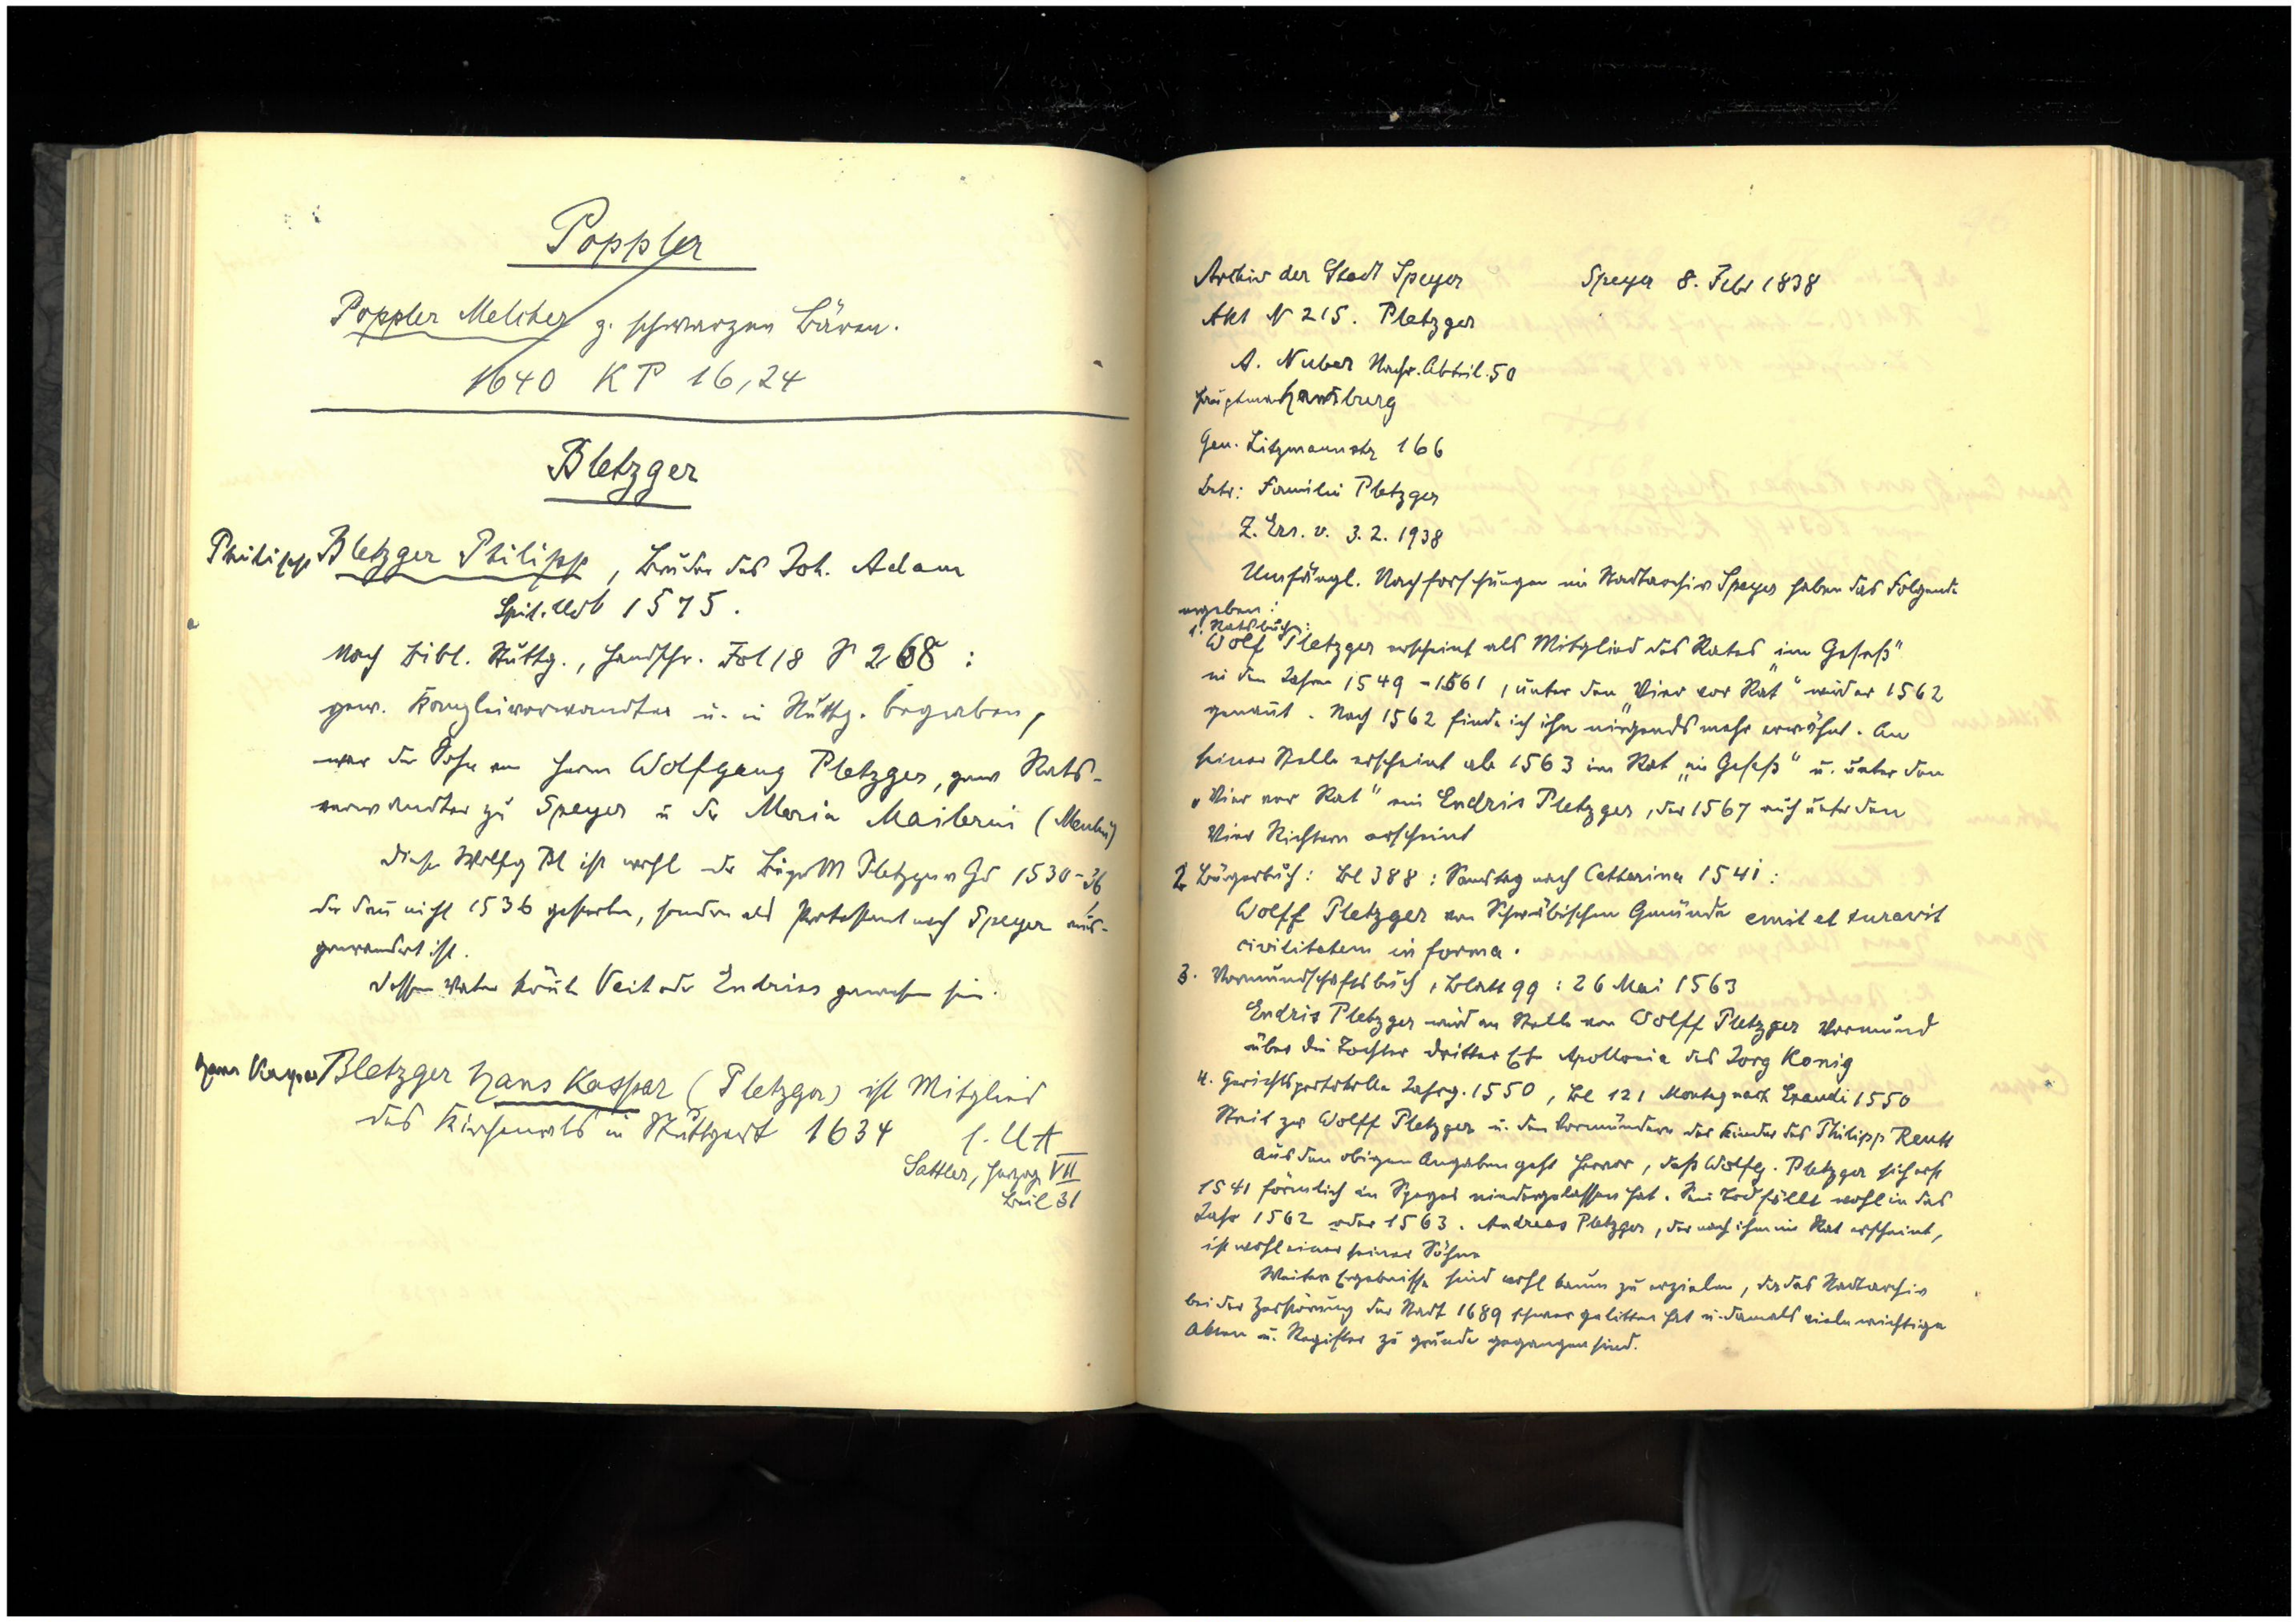 Poppler
Poppler Melcher z. schwarzen Bären.
1640 KP 16,24
Bletzger
Philipp Bletzger Philipp, Bruder des Joh. Adam
Spit. Urk 1575.
Nach Bibl. Stuttg., Handschr. Fol 18 S 268 :
gew. Kanzleiverwandter u. in Stuttg. begraben,
war der Sohn von Herrn Wolfgang Pletzger, gew Rats-
verwandter zu Speyer u der Maria Mailerin
dieser Wolfg Pl ist wohl der BürgerM Pletzger v Gd 1530-36
der dann nicht 1536 gestorben, sondern als Protestant nach Speyer aus-
gewandert ist.
Dessen Vater könnte Veit oder Endriss gewesen sein.
Hans Kaspar Bletzger Hans Kaspar (Pletzger) ist Mitglied
des Kirchenrats in Stuttgart 1634 s. U A
Sattler, Herzog VII
Beil 31
Archiv der Stadt Speyer Speyer 8. Febr 1838
Akt N 215. Pletzger
A. Nuber Nachr. Abteil. 50
Hauptmann
Gen. Litzmannstr 166
Betr: Familie Pletzger
Z. Ers. v. 3.2.1938
Umfängl. Nachforschungen im Stadtarchiv Speyer haben das Folgende
ergeben:
1. Ratsbuch:
Wolf Pletzger erscheint als Mitglied des Rates „im Gesess“
in den Jahren 1549-1561, unter den „Vier vor Rat“ wird er 1562
genannt. Nach 1562 finde ich ihn nirgends mehr erwähnt. An
seiner Stelle erscheint ab 1563 im Rat „im Gesess“ u. unter den
„Vier vor Rat“ ein Endris Pletzger, der 1567 auch unter den
Vier Richtern erscheint
2 Bürgerbuch: Bl 388 : Samstag nach Catterina 1541 :
Wolff Pletzger von Schwäbischen Gmünde emit et iuravit
civilitatem in forma.
3. Vormundschaftsbuch, Blatt 99 : 26 Mai 1563
Endris Pletzger wird an Stelle von Wolff Pletzger Vormund
über die Tochter dritter Ehe Apollonia des Jorg Konig
4. Gerichtsprotokolle Jahrg. 1550, Bl 121 Montag nach Exaudi 1550
Streit zw Wolff Pletzger u. den Vormündern der Kinder des Philipp
Aus den obigen Angaben geht hervor, daß Wolfg. Pletzger sich erst
1541 förmlich in Speyer niedergelassen hat. Sein Tod fällt wohl in das
Jahr 1562 oder 1563. Andreas Pletzger, der nach ihm im Rat erscheint,
ist wohl einer seiner Söhne
Weitere Ergebnisse sind wohl kaum zu erzielen, da das Stadtarchiv
bei der Zerstörung der Stadt 1689 schwer gelitten hat u. damals viele wichtige
Akten u. Register zu grunde gegangen sind.